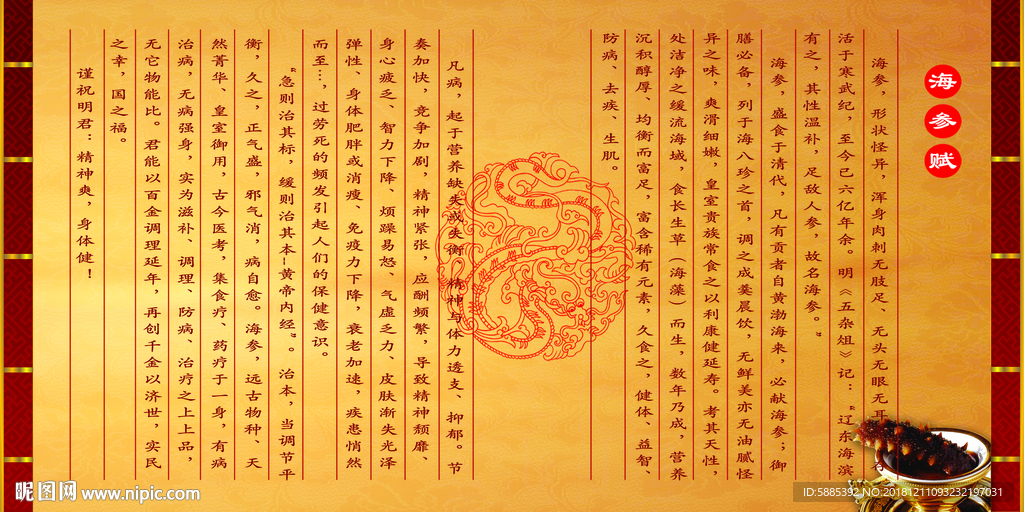 海参赋
海参，形状怪异，浑身肉刺无肢足、无头无眼无耳
活于寒武纪，至今已六亿年余。明《五杂俎》记：“辽东海滨
有之，其性温补，足敌人参，故名海参。”
海参，盛食于清代，凡有贡者自黄渤海来，必献海参；御
膳必备，列于海八珍之首，调之成羹晨饮，无鲜美亦无油腻怪
异之味，爽滑细嫩，皇室贵族常食之以利康健延寿。考其天性，
处洁净之缓流海域，食长生草（海藻）而生，数年乃成，营养
沉积醇厚、均衡而富足，富含稀有元素，久食之，健体、益智、
防病、去疾、生肌。
凡病，起于营养缺失或失衡，精神与体力透支、抑郁。节
奏加快，竞争加剧，精神紧张，应酬频繁，导致精神颓靡、
身心疲乏、智力下降、烦躁易怒、气虚乏力、皮肤渐失光泽
弹性、身体肥胖或消瘦、免疫力下降，衰老加速，疾患悄然
而至…，过劳死的频发引起人们的保健意识。
“急则治其标，缓则治其本-黄帝内经”。治本，当调节平
衡，久之，正气盛，邪气消，病自愈。海参，远古物种、天
然菁华、皇室御用，古今医考，集食疗、药疗于一身，有病
治病，无病强身，实为滋补、调理、防病、治疗之上上品，
无它物能比。君能以百金调理延年，再创千金以济世，实民
之幸，国之福。
谨祝明君：精神爽，身体健！
昵图网 www.nipic.com
ID:5885392 NO:20181211093232197031